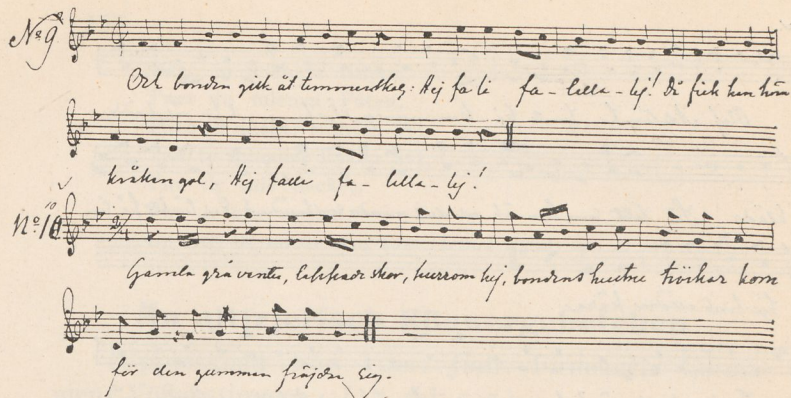 No 9
Och bonden gick åt timmerskog: Hej fa li fa - lella - lej! Då fick han höra
kråkan gol, Hej falli fa - lella - lej!
No 10
Gamla grå vantar, lappade skor, hurrom hej, bondens hustru kom
för den gumman fröjdar sig.